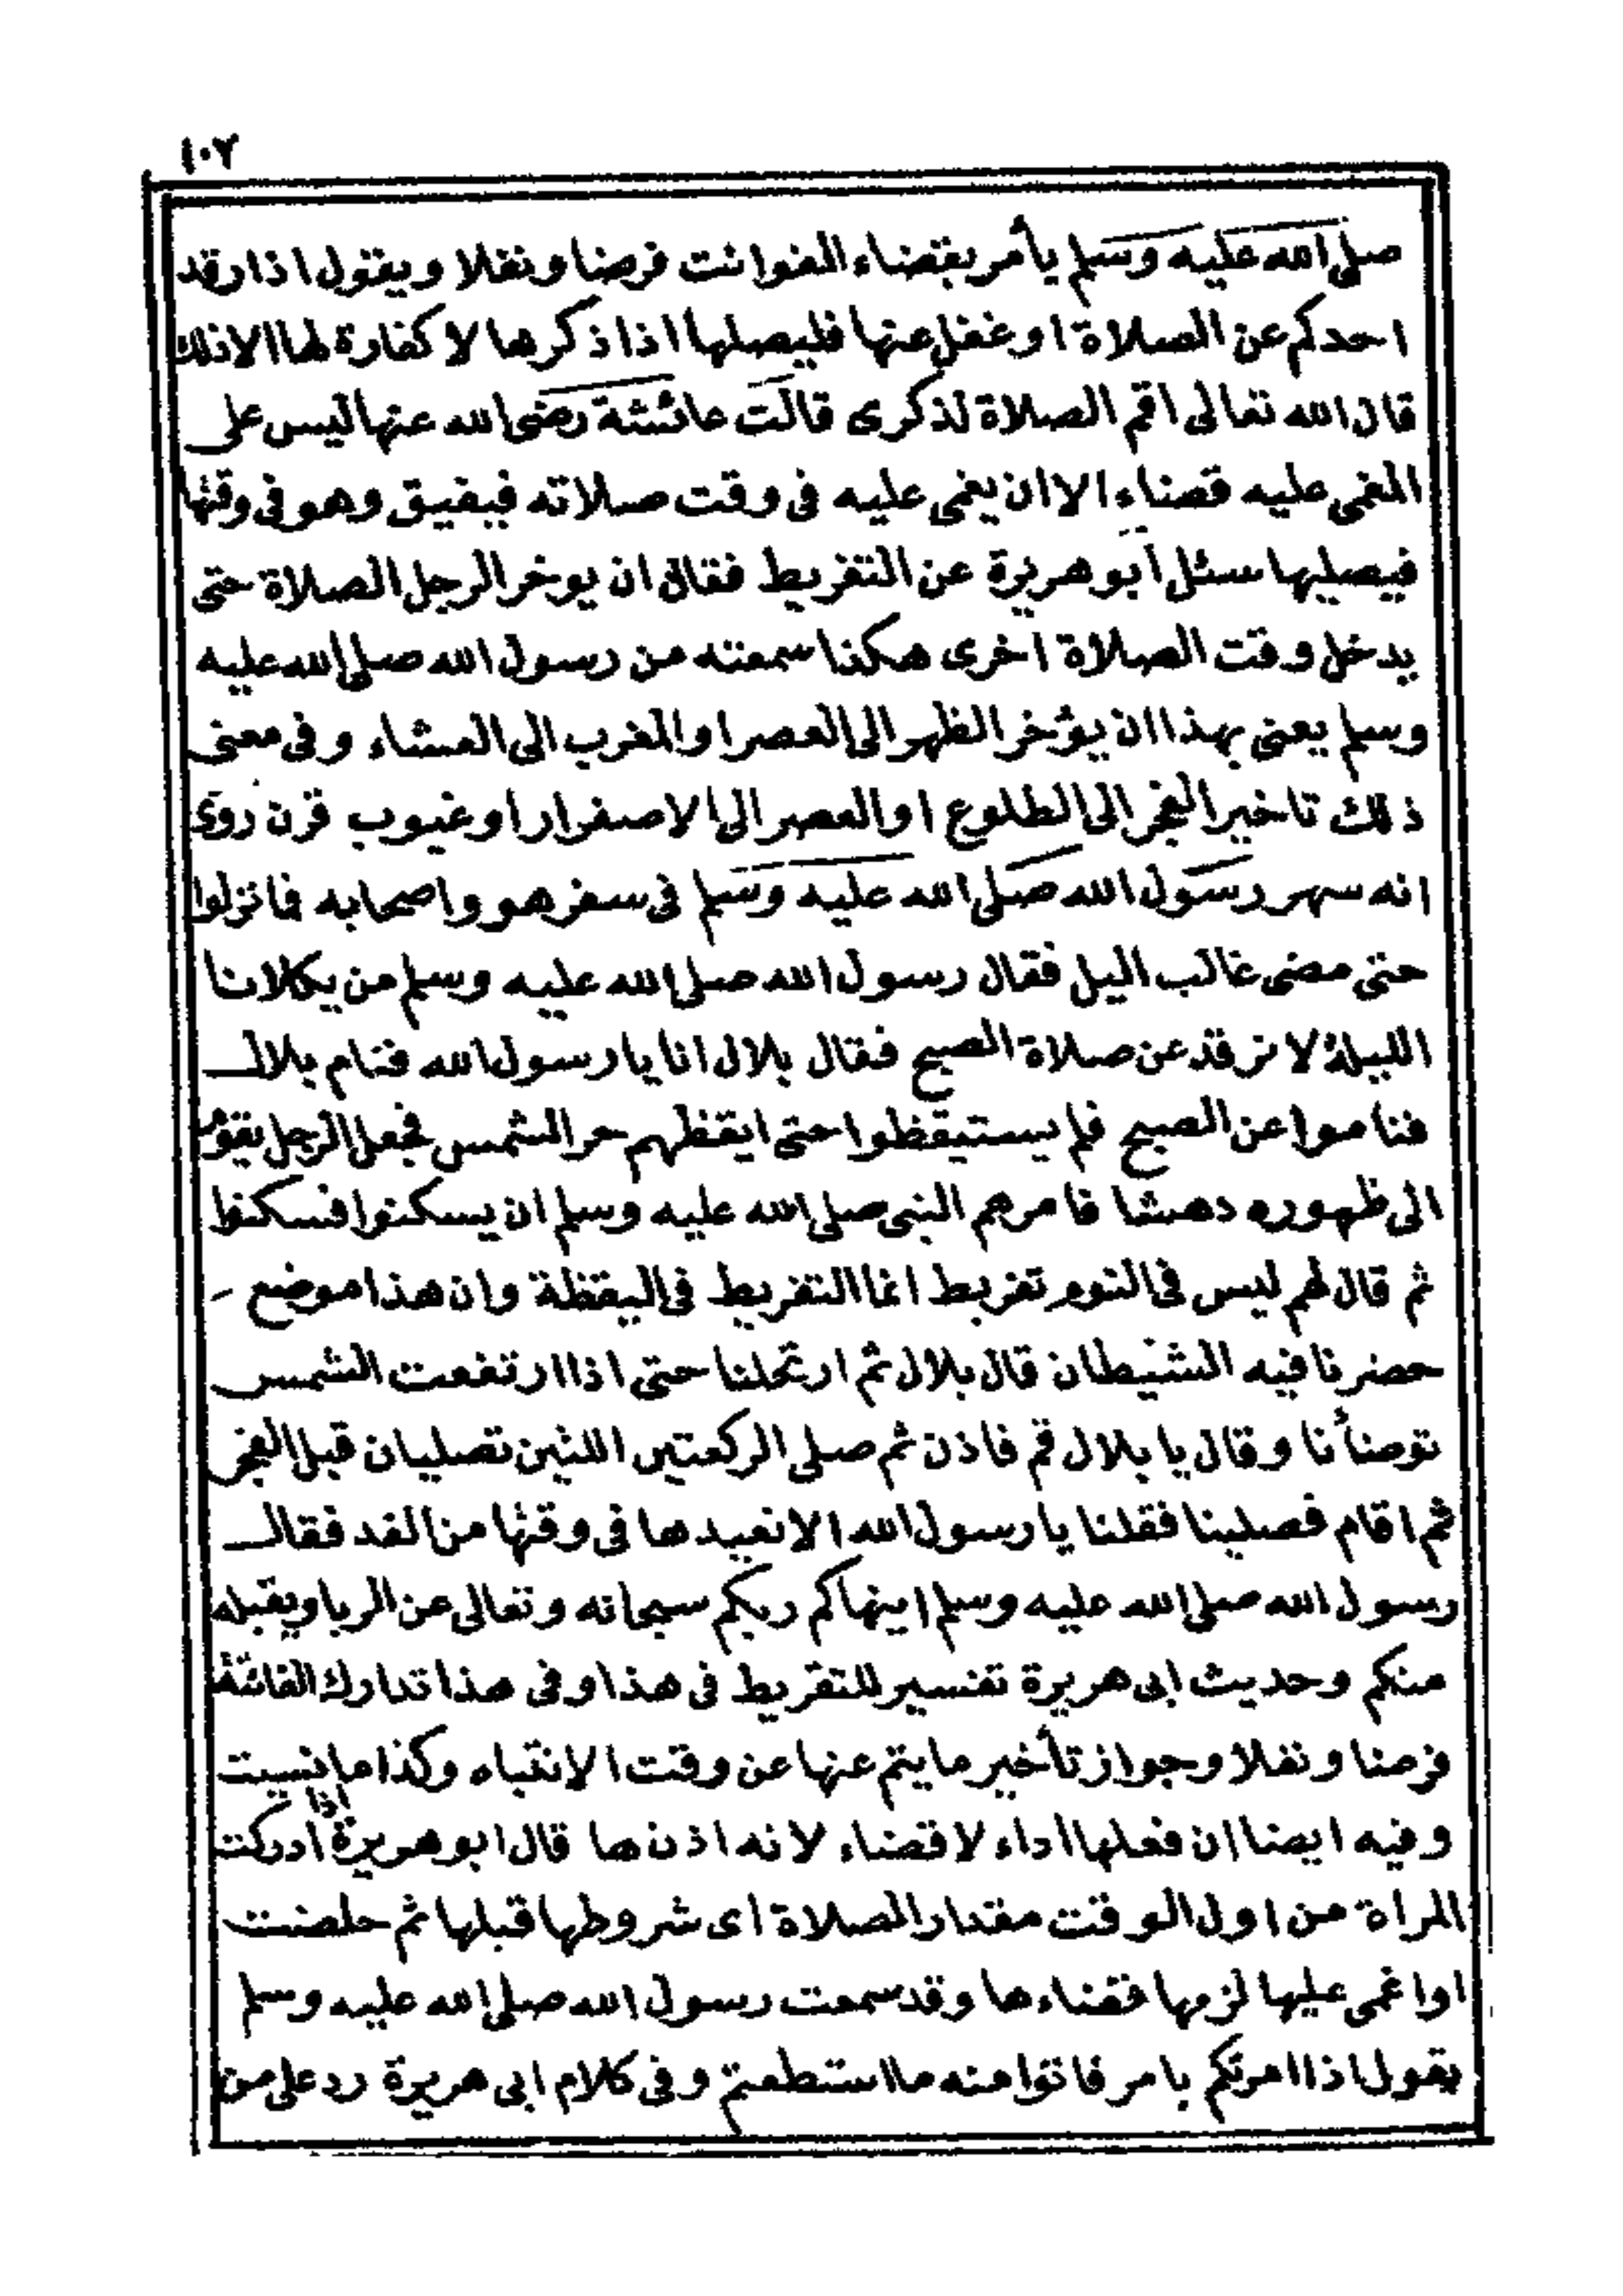 ١٠٧
صلى الله عليه وسلم يأمر بقضاء الفوائت فرضا ونفلا ويقول اذا رقد
احدكم عن الصلاة او غفل عنها فليصلها اذا ذكرها لا كفارة لها الا ذلك
قال الله تعالى اقم الصلاة لذكرى قالت عائشة رضى الله عنها ليس على
المغمى عليه قضاء الا ان يغمى عليه فى وقت صلاته فيفيق وهو فى وقتها
فيصليها سئل ابو هريرة عن التفريط فقال ان يوخر الرجل الصلاة حتى
يدخل وقت الصلاة اخرى هكذا سمعته من رسول الله صلى الله عليه
وسلم يعنى بهذا ان يؤخر الظهر الى العصر او المغرب الى العشاء وفى معنى
ذلك تاخير الفجر الى الطلوع او العصر الى الاصفرار او غيوب قرن روى
انه سهر رسول الله صلى الله عليه وسلم فى سفر هو واصحابه فما نزلوا
حتى مضى غالب اليل فقال رسول الله صلى الله عليه وسلم من يكلانا
الليلة لا نرقد عن صلاة الصبح فقال بلال انا يا رسول الله فنام بلال
فناموا عن الصبح فلم يستيقظوا حتى ايقظهم حر الشمس فجعل الرجل يقوم
الى ظهوره دهشا فامرهم النبى صلى الله عليه وسلم ان يسكنوا فسكنوا
ثم قال لهم ليس فى النوم تفريط انما التفريط فى اليقظة وان هذا موضع
حضرنا فيه الشيطان قال بلال ثم ارتحلنا حتى اذا ارتفعت الشمس
توضأنا وقال يا بلال قم فاذن ثم صلى الركعتين اللتين تصليان قبل الفجر
ثم اقام فصلينا فقلنا يا رسول الله الا نعيدها فى وقتها من الغد فقال
رسول الله صلى الله عليه وسلم اينهاكم ربكم سبحانه وتعالى عن الربا ويقبله
منكم وحديث ابى هريرة تفسير للتفريط فى هذا وفى هذا تدارك الفائتة
فرضا ونفلا وجواز تأخير ما يتم عنها عن وقت الانتباه وكذا ما نسيت
وفيه ايضا ان فعلها اداء لا قضاء لانه اذن ها قال ابو هريرة اذا ادركت
المراة من اول الوقت مقدار الصلاة اى شروطها قبلها ثم حاضت
او اغمى عليها لزمها قضاءها وقد سمعت رسول الله صلى الله عليه وسلم
يقول اذا امرتكم بامر فاتوا منه ما استطعتم وفى كلام ابى هريرة رد على من